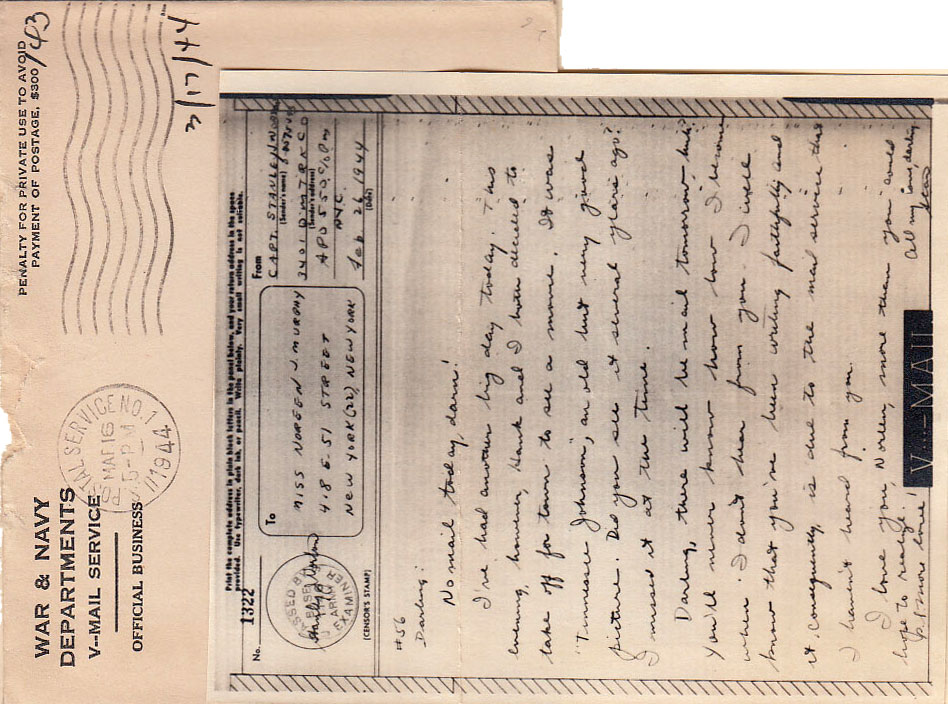 WAR & NAVY
DEPARTMENTS
V--MAIL SERVICE
OFFICIAL BUSINESS
PENALTY FOR PRIVATE USE TO AVOID
PAYMENT OF POSTAGE, $300
/43
POSTAL SERVICE NO. 1
MAR 16
5-PM
1944
3/17/44
Print the complete address in plain block letters in the panel below, and your return address in the space
provided. Use typewriter, dark ink, or pencil. Write plainly. Very small writing is not suitable.
No.
1322
PASSED BY
BASE
ARMY EXAMINER
(CENSOR'S STAMP)
To
MISS NOREEN J. MURPHY
418 E. 51 STREET
NEW YORK (22), NEW YORK
From
CAPT. STANLEY
(Sender's name)
3401 ORD MTR
(Sender's address)
APO 550, % PM
NYC
Feb 26 1944
(Date)
#56
Darling:
No mail today, darn!
I've had another big day today. This
evening, however, Hank and I both decided to
take off for town to see a movie. It was
"Tennessee Johnson", an old but very good
picture. Did you see it several years ago?
I missed it at the time.
Darling, there will be mail tomorrow, huh?
You'll never know how low I become
when I don't hear from you. I well
know that you've been writing faithfully and
it, consequently, is due to the mail service that
I haven't heard from you.
I love you, Noreen, more than you could
hope to realize.
All my love, darling
Stan
P.S. more love!
V-MAIL